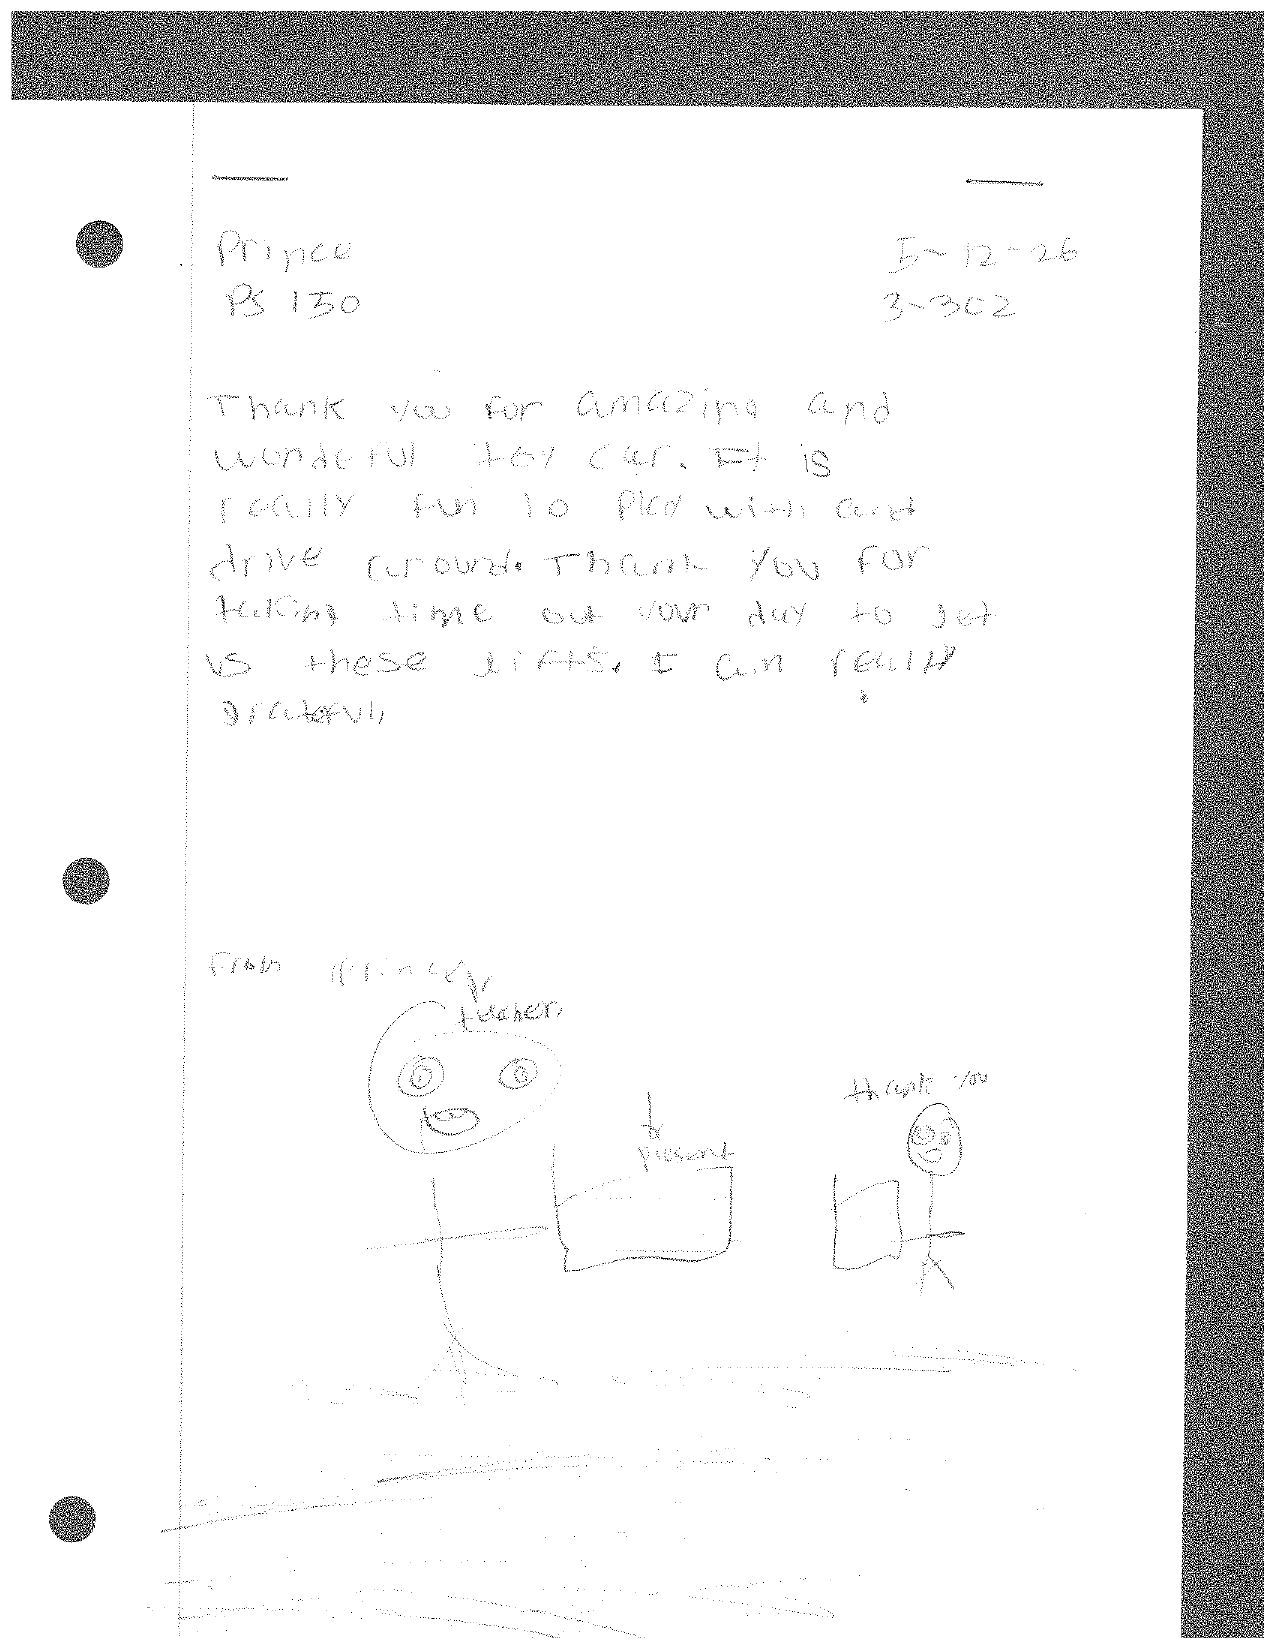 Prince 5-12-26
PS 150 3-302
Thank you for amazing and
wonderful toy car. It is
really fun to play with and
drive around. Thank you for
taking time out your day to get
us these gifts. I am really
grateful,
From Prince
teacher
thank you
present